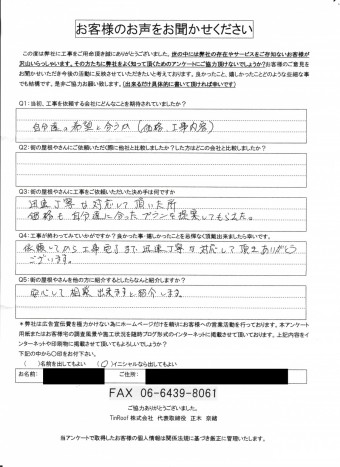 お客様のお声をお聞かせください
この度は弊社に工事をご用命頂き誠にありがとうございました。世の中には弊社の存在やサービスをご存知ないお客様が
沢山いらっしゃいます。その方たちに弊社をよく知って頂くためのアンケートにご協力頂けないでしょうか?お客様のご意見を
お聞かせいただき今後の活動に反映させていただきたいと考えております。良かったこと、嬉しかったことどのような些細な事
でも結構です。是非ご協力お願い致します。(出来るだけ具体的に書いて頂ければ幸いです)
Q1:当初、工事を依頼する会社にどんなことを期待されていましたか?
自分達の希望と合うか(価格、工事内容)
Q2:街の屋根やさんにご依頼いただく際に他社と比較しましたか?した方はどこの会社と比較しましたか?
Q3:街の屋根やさんに工事をご依頼いただいた決め手は何ですか
迅速丁寧な対応して頂いた所
価格も自分達に合ったプランを提案してもらえた。
Q4:工事が終わってみていかがですか?良かった事・嬉しかったことを忌憚なく頂戴出来ましたら幸いです。
依頼してから工事完了まで迅速丁寧な対応して頂きありがとう
ございます。
Q5:街の屋根やさんを他の方に紹介するとしたらなんと紹介しますか?
安心して相談出来ますと紹介します
*弊社は広告宣伝費を極力かけない為にホームページだけを頼りにお客様への営業活動を行っております。本アンケート
用紙またはお客様宅の調査風景や施工状況を随時ブログ形式のインターネットに掲載させて頂いております。上記内容をイ
ンターネットや印刷物に掲載させて頂いてもよろしいでしょうか?
下記の中から〇印をお付下さい。
( )名前を出してもよい (〇)イニシャルなら出してもよい
お名前: ご住所:
FAX 06-6439-8061
ご協力ありがとうございました。
TinRoof 株式会社 代表取締役 正木 奈緒
当アンケートで取得したお客様の個人情報は関係法規に基づき厳正に管理いたします。